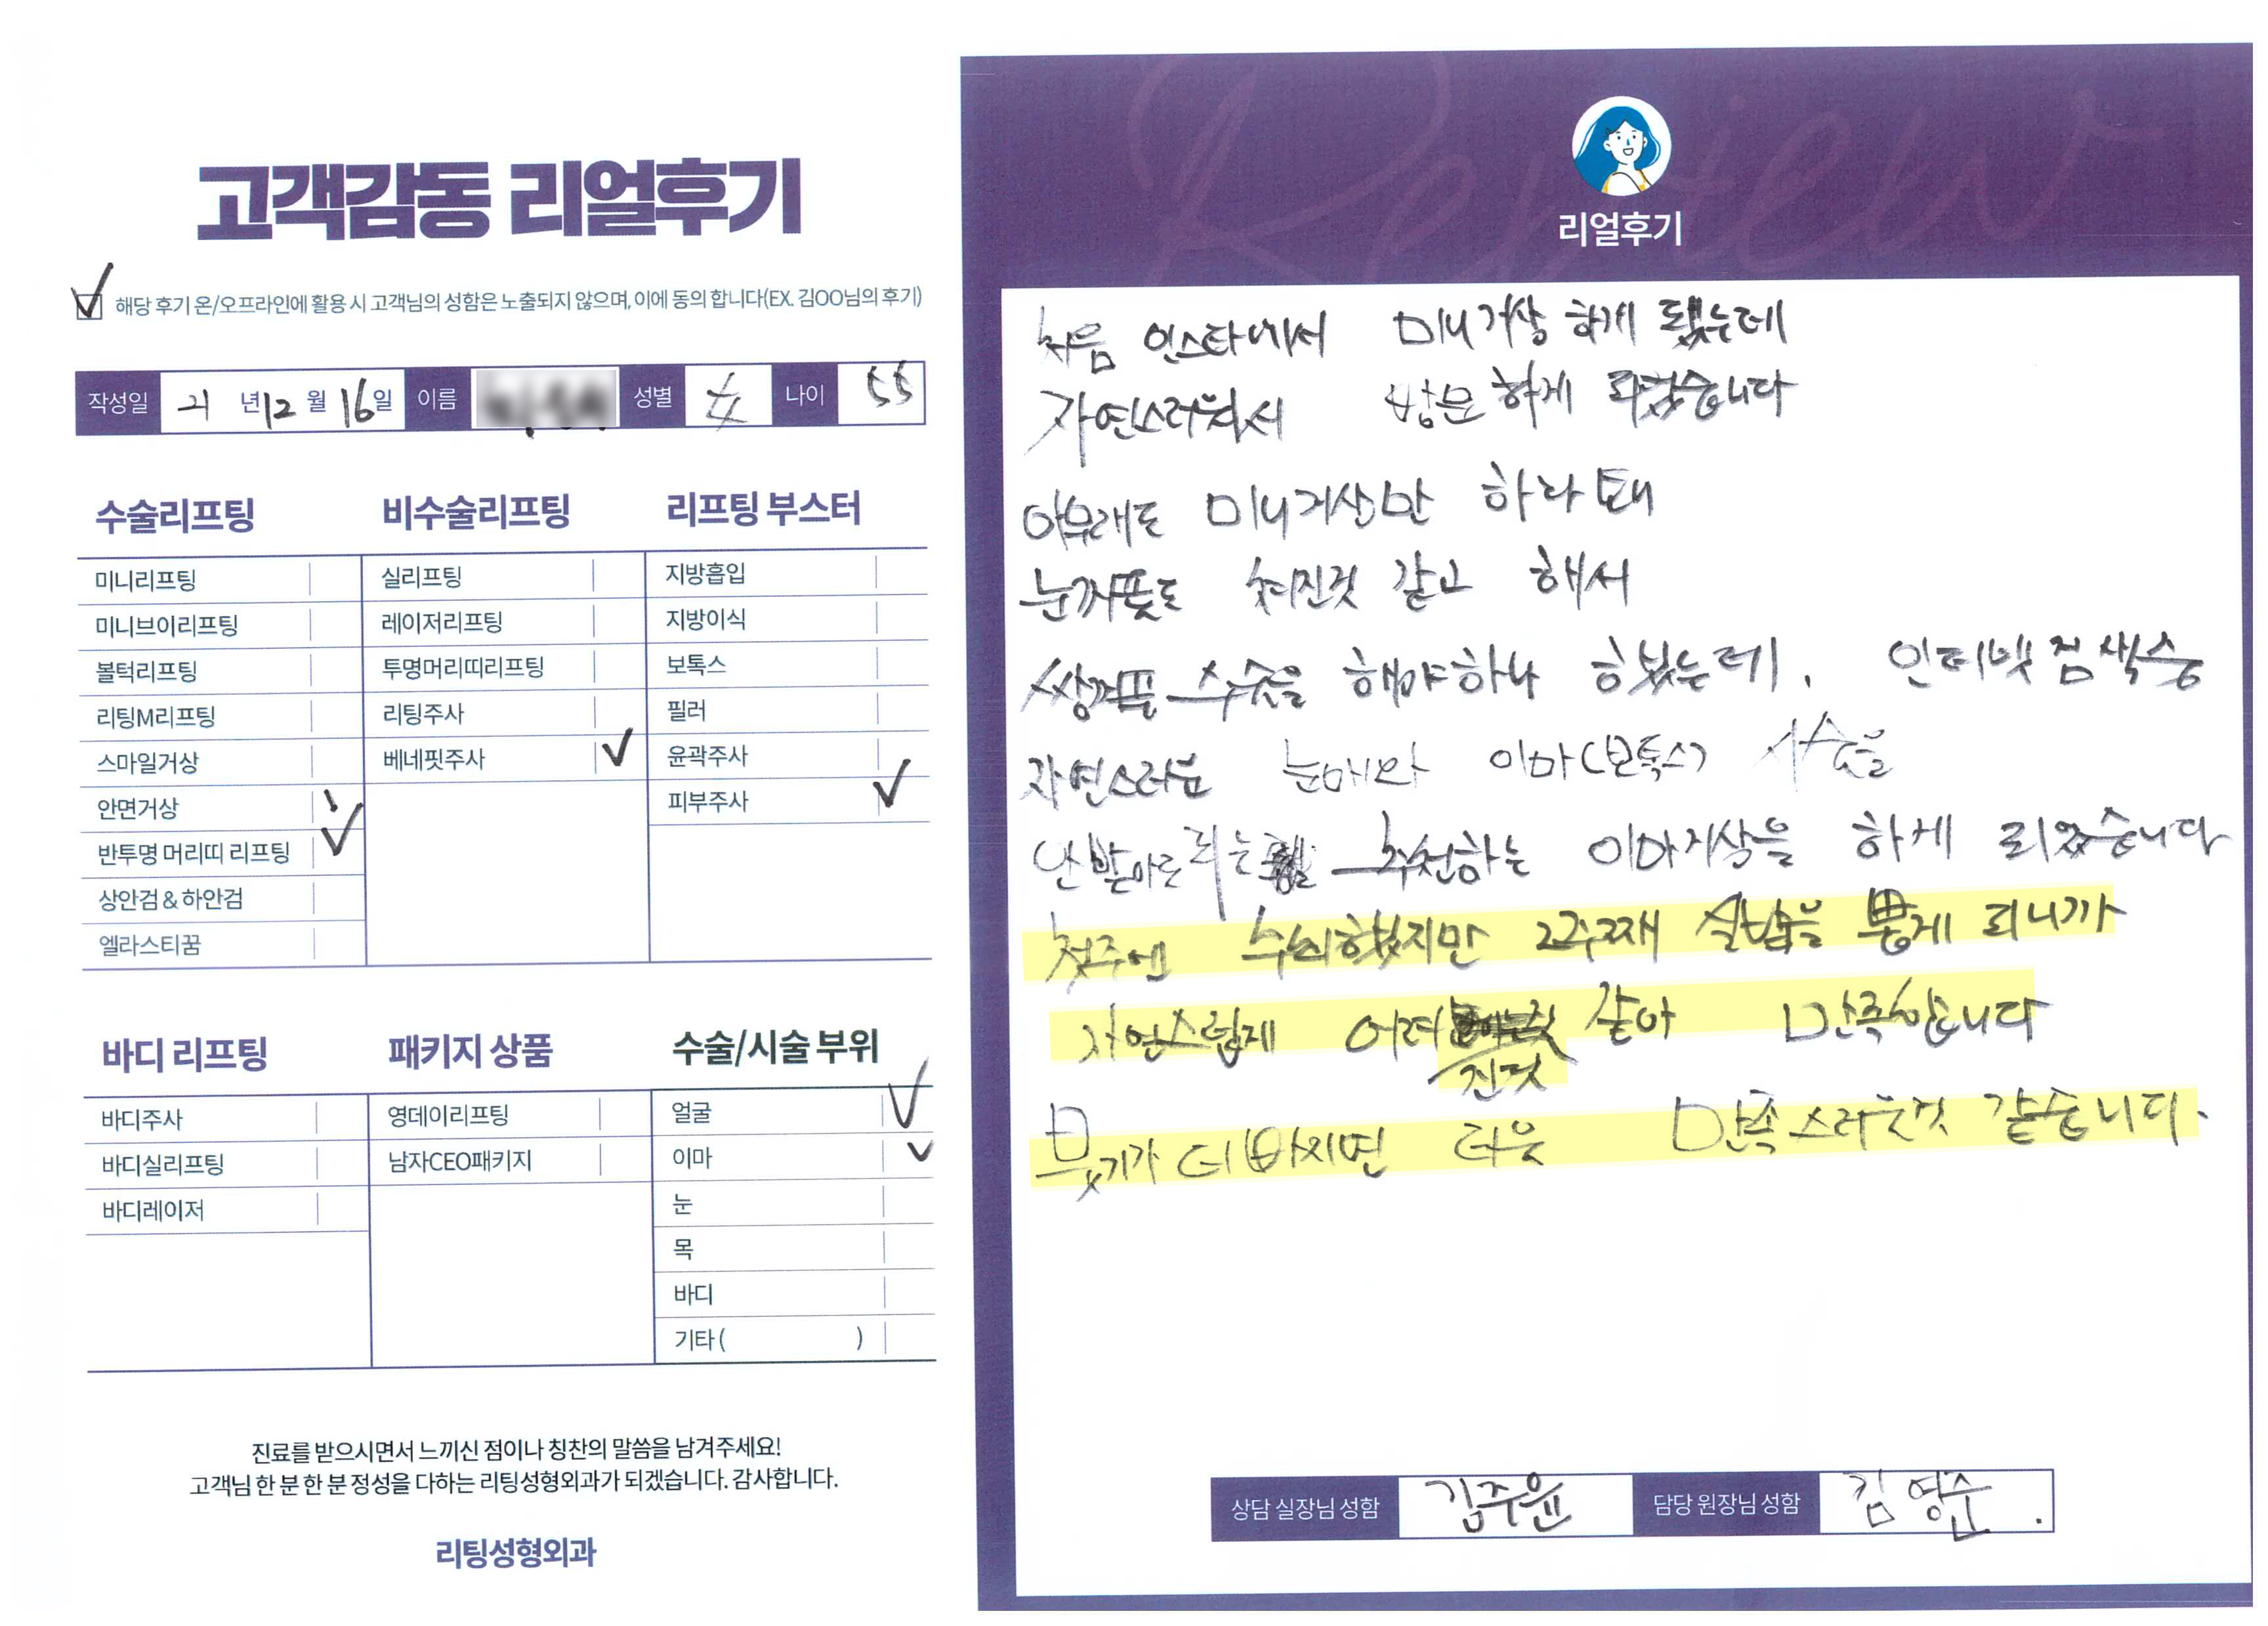 고객감동 리얼후기
해당 후기 온/오프라인에 활용 시 고객님의 성함은 노출되지 않으며, 이에 동의 합니다(EX. 김OO님의 후기)
작성일 21 년 12 월 16일 이름 성별 女 나이 55
수술리프팅
미니리프팅
미니브이리프팅
볼턱리프팅
리팅M리프팅
스마일거상
안면거상
반투명 머리띠 리프팅
상안검 & 하안검
엘라스티꿈
비수술리프팅
실리프팅
레이저리프팅
투명머리띠리프팅
리팅주사
베네핏주사
리프팅 부스터
지방흡입
지방이식
보톡스
필러
윤곽주사
피부주사
바디 리프팅
바디주사
바디실리프팅
바디레이저
패키지 상품
영데이리프팅
남자CEO패키지
수술/시술 부위
얼굴
이마
눈
목
바디
기타 ( )
진료를 받으시면서 느끼신 점이나 칭찬의 말씀을 남겨주세요!
고객님 한 분 한 분 정성을 다하는 리팅성형외과가 되겠습니다. 감사합니다.
리팅성형외과
Review
리얼후기
처음 인스타에서 미니거상 하게 됐는데
자연스러워서 방문하게 되었습니다
아무래도 미니거상만 하나
눈꺼풀도 처진것 같고 해서
쌍꺼풀 수술을 해야하나 했는데, 인터넷 검색중
자연스러운 눈매와 이마(보톡스) 시술을
안받아도 되는 추천하는 이마거상을 하게 되었습니다
첫주에 했지만 2주째 실밥을 뽑게 되니까
자연스럽게 어려진것 같아 만족합니다
붓기가 더 빠지면 더욱 만족스러운것 같습니다.
상담 실장님 성함 김주윤 담당 원장님 성함 김영준.